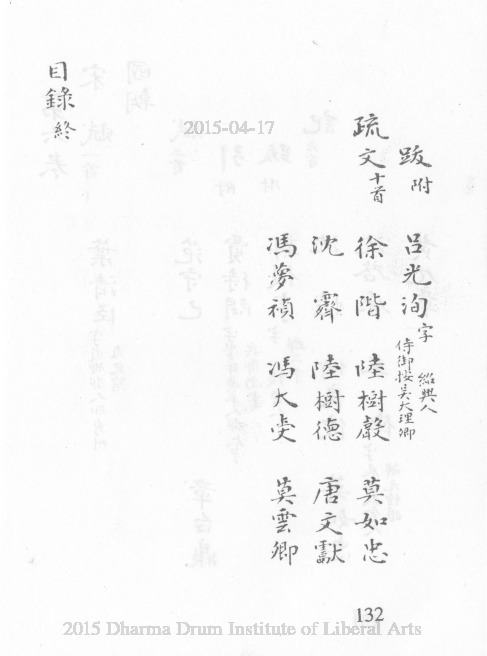 跋附 呂光洵 字 紹興人 侍御按吳大理卿
疏文 十首 徐階 陸樹聲 莫如忠
沈霽 陸樹德 唐文獻
馮夢禎 馮大受 莫雲卿
目錄終
132
2015-04-17
2015 Dharma Drum Institute of Liberal Arts